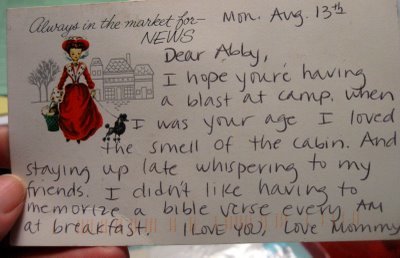 Always in the market for—
NEWS
Mon. Aug. 13th
Dear Abby,
I hope you're having
a blast at camp. When
I was your age I loved
the smell of the cabin. And
staying up late whispering to my
friends. I didn't like having to
memorize a bible verse every AM
at breakfast. I LOVE YOU, Love Mommy